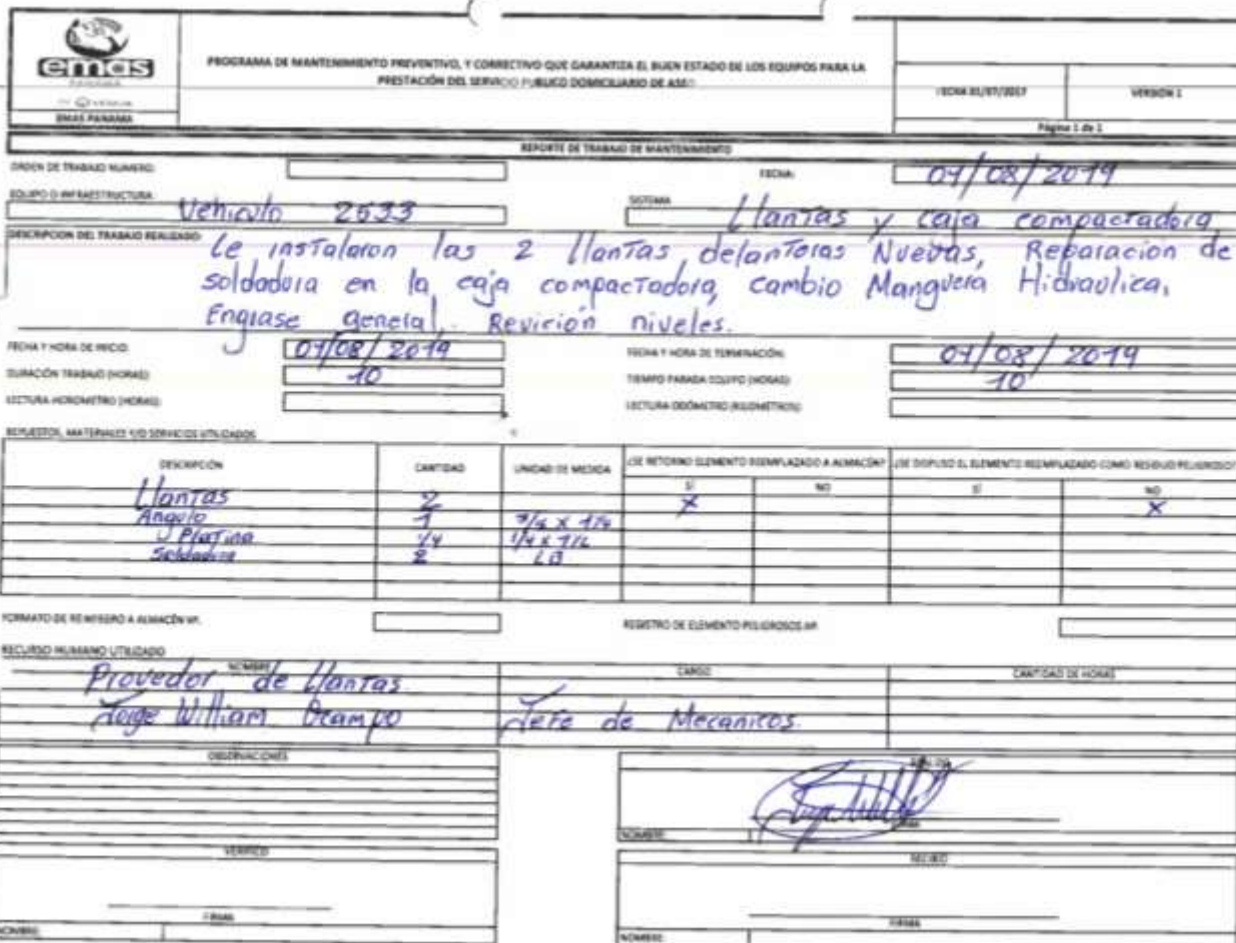 emas
PANAMÁ
EMAS PANAMÁ
PROGRAMA DE MANTENIMIENTO PREVENTIVO, Y CORRECTIVO QUE GARANTIZA EL BUEN ESTADO DE LOS EQUIPOS PARA LA
PRESTACIÓN DEL SERVICIO PUBLICO DOMICILIARIO DE ASEO
FECHA 01/07/2017
VERSIÓN 1
Página 1 de 1
REPORTE DE TRABAJO DE MANTENIMIENTO
ORDEN DE TRABAJO NUMERO:
FECHA:
01/08/2019
EQUIPO O INFRAESTRUCTURA
Vehiculo 2533
SISTEMA
Llantas y caja compactadora,
DESCRIPCION DEL TRABAJO REALIZADO:
Le instalaron las 2 llantas, delanteras Nuevas, Reparacion de
soldadura en la caja compactadora, cambio Manguera Hidraulica,
Engrase general. Revición niveles.
FECHA Y HORA DE INICIO:
01/08/2019
FECHA Y HORA DE TERMINACIÓN:
01/08/2019
DURACIÓN TRABAJO (HORAS):
10
TIEMPO PARADA EQUIPO (HORAS):
10
LECTURA HOROMETRO (HORAS):
LECTURA ODÓMETRO (KILOMETROS):
REPUESTOS, MATERIALES Y/O SERVICIOS UTILIZADOS
DESCRIPCIÓN
CANTIDAD
UNIDAD DE MEDIDA
¿SE RETORNO ELEMENTO REEMPLAZADO A ALMACÉN?
¿SE DISPUSO EL ELEMENTO REEMPLAZADO COMO RESIDUO PELIGROSO?
SÍ
NO
SÍ
NO
Llantas 2 X X
Angulo 1
Platina 1/4
Soldadura 2 LB
FORMATO DE REINTEGRO A ALMACÉN Nº.
REGISTRO DE ELEMENTO PELIGROSOS Nº.
RECURSO HUMANO UTILIZADO
NOMBRE
CARGO
CANTIDAD DE HORAS
Provedor de llantas.
Jorge William Ocampo
Jefe de Mecanicos.
OBSERVACIONES
FIRMA
NOMBRE:
VERIFICO
RECIBIO
FIRMA
FIRMA
NOMBRE:
NOMBRE: